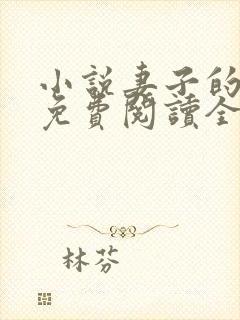 小說妻子的
免費閱讀全
林芬